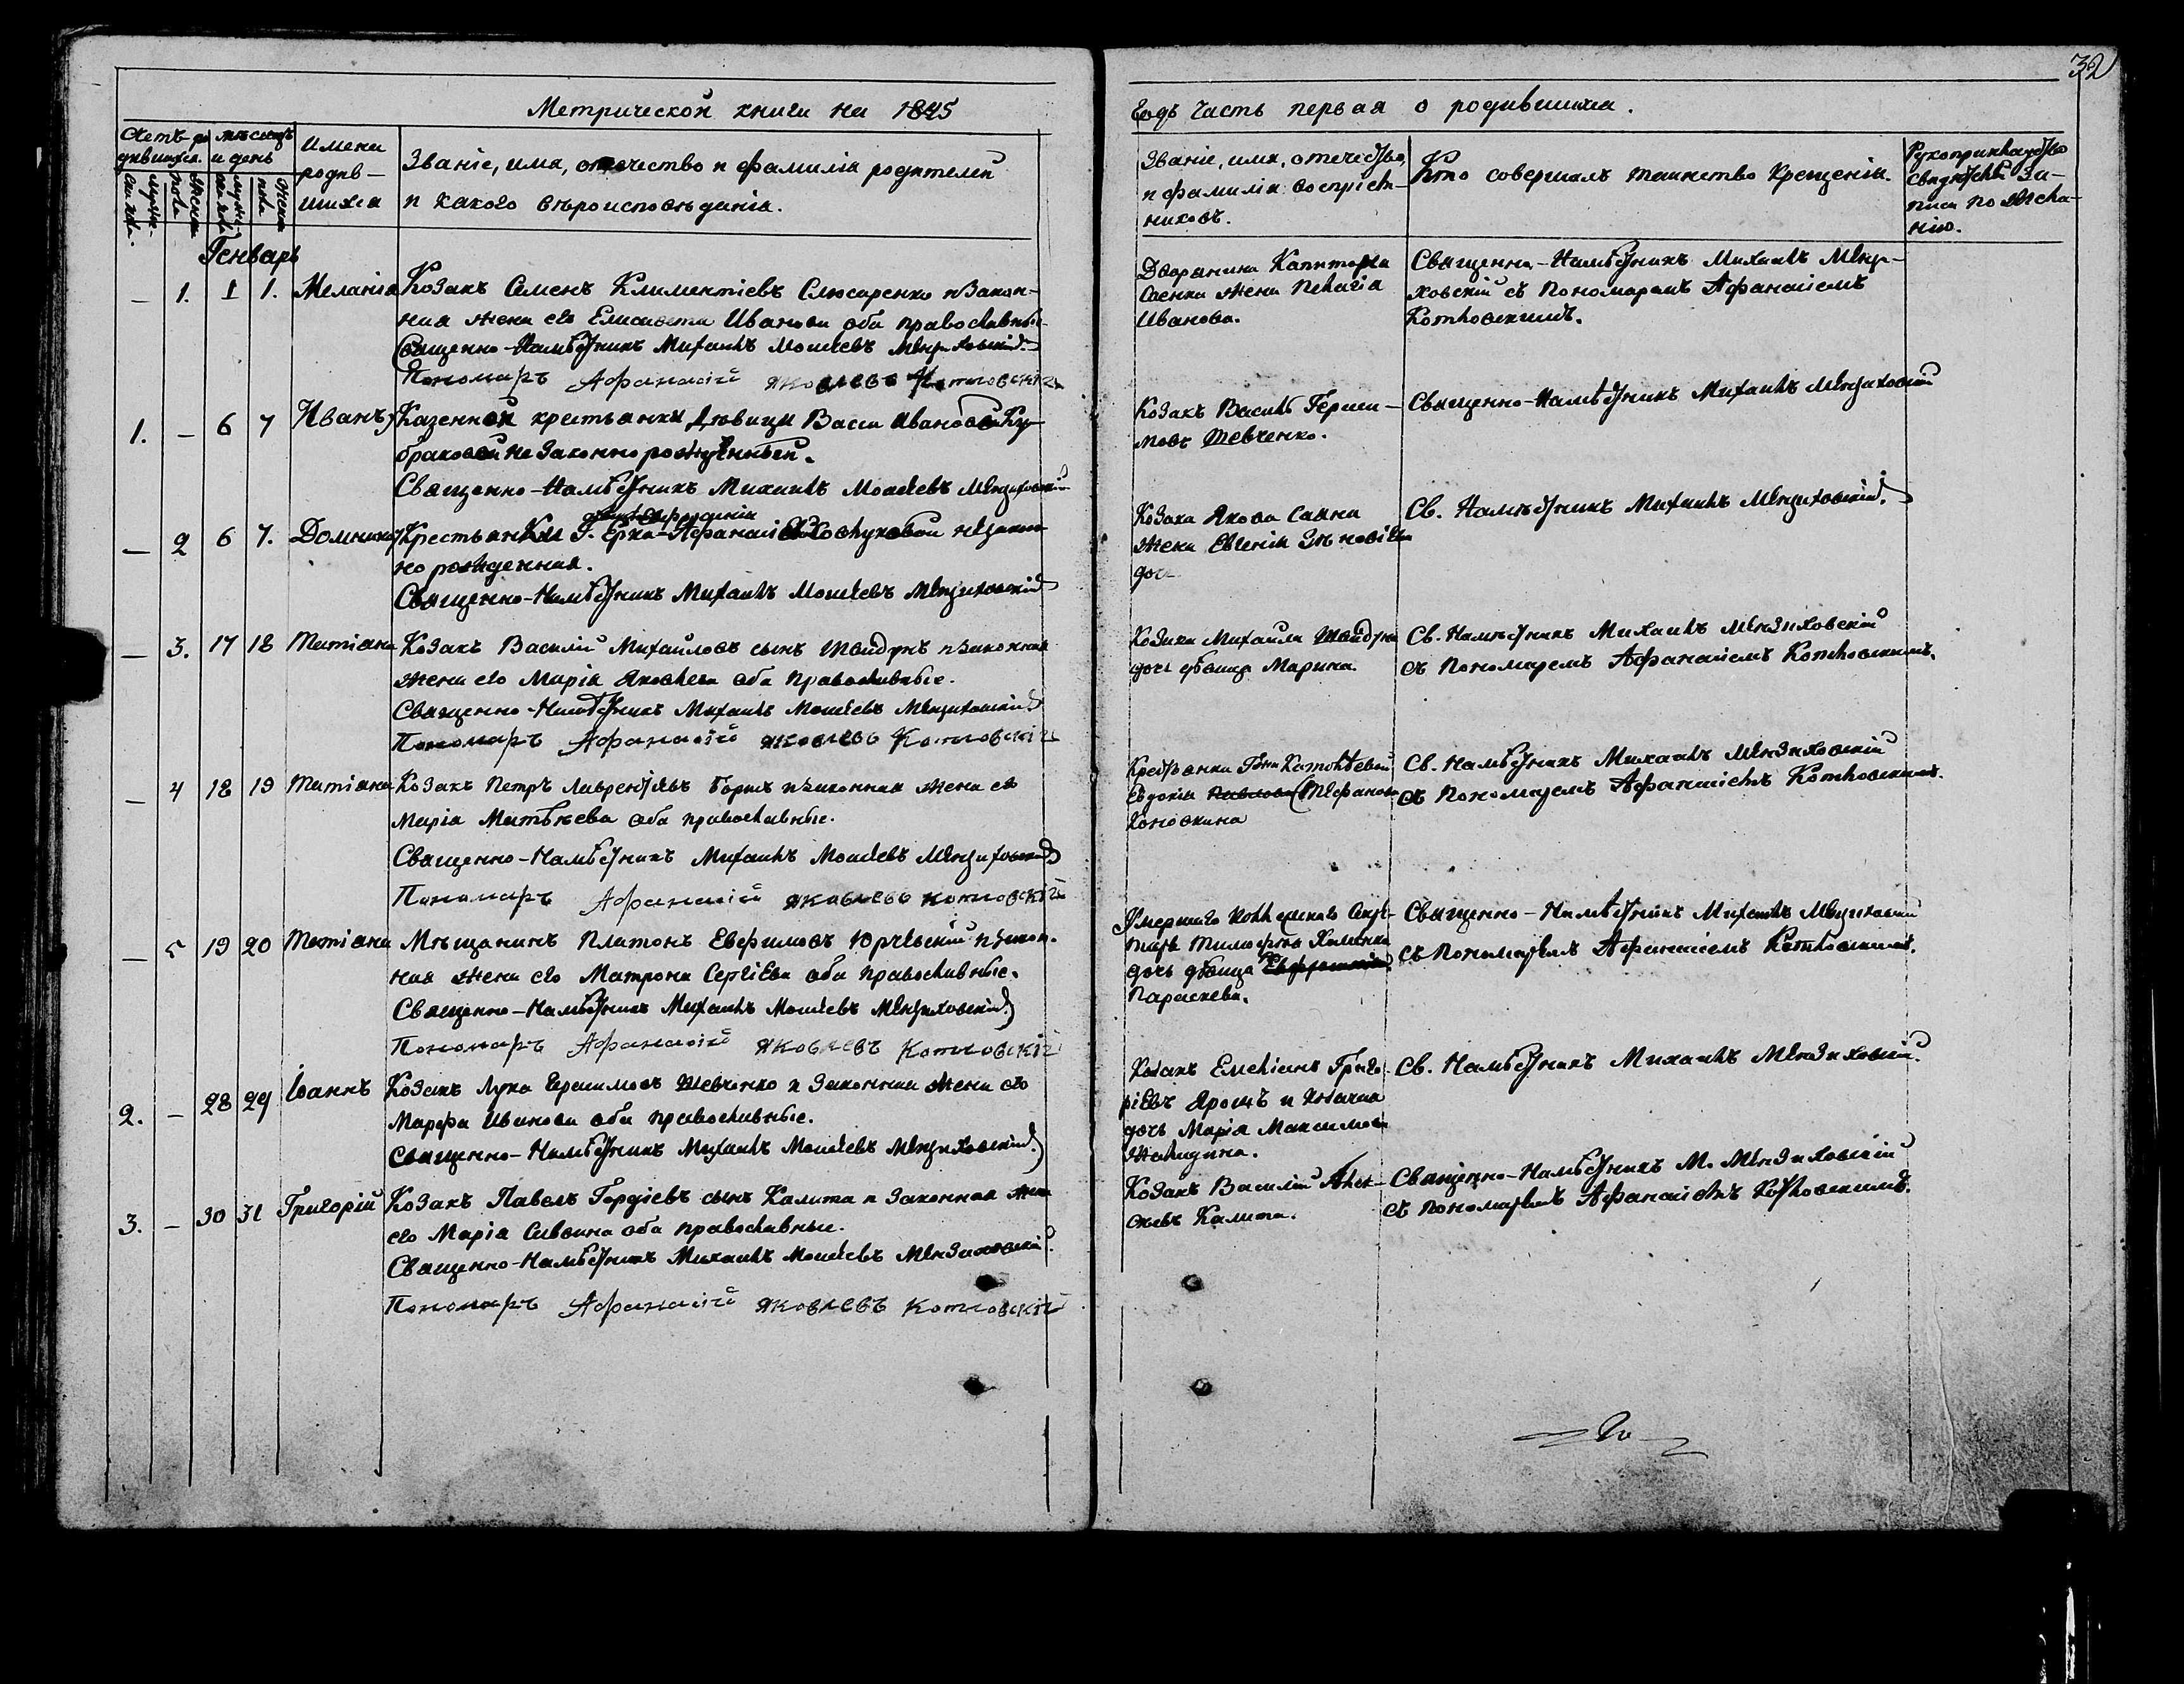 32
Метрической книги на 1845
Годъ часть первая о родившихся.
Счетъ ро- мѣсяцъ
дившихся. и день
Имена
родив-
шихся
Званіе, имя, отечество и фамилія родителей
и какого вѣроисповѣданія.
Званіе, имя, отечество,
и фамилія воспріем-
никовъ.
Кто совершалъ таинство крещенія.
Рукоприкладство
свидѣтелей за-
писи по жела-
нію.
Генварь
— 1. 1 1. Меланія Козакъ Семенъ Климентіевъ Слюсаренко и закон-
ная жена его Елисавета Иванова оба православные
Священно-Намѣстникъ Михаилъ Моисеевъ Мензиховскій
Пономарь Афанасій Яковлевъ Котловскій
Дворянина Капитона
Саенка жена Пелагія
Иванова.
Священно-Намѣстникъ Михаилъ Мензи-
ховскій съ Пономаремъ Афанасіемъ
Котловскимъ.
1. — 6 7 Иванъ Казенной крестьянки дѣвицы Васы Ивановой Ку-
браковой не законно рожденный.
Священно-Намѣстникъ Михаилъ Моисеевъ Мензиховскій
Козакъ Василь Гераси-
мовъ Шевченко.
Священно-Намѣстникъ Михаилъ Мензиховскій
— 2 6 7. Домникія Крестьянки Г. Ерка Афанасіевой незакон-
но рожденная.
Священно-Намѣстникъ Михаилъ Моисеевъ Мензиховскій
Козака Якова Саяна
жена Евгенія Зѣновіева
дочь
Св. Намѣстникъ Михаилъ Мензиховскій.
— 3. 17 18 Татіана Козакъ Василій Михайловъ сынъ Шайдунъ и законная
жена его Марія Яковлева оба православные.
Священно-Намѣстникъ Михаилъ Моисеевъ Мензиховскій
Пономарь Афанасій Яковлевъ Котловскій
Козака Михаила Шайдуна
дочь дѣвица Марина.
Св. Намѣстникъ Михаилъ Мензиховскій
съ Пономаремъ Афанасіемъ Котловскимъ.
— 4 18 19 Татіана Козакъ Петръ Лаврентіевъ Борщъ и законная жена его
Марія Матѣѣева оба православные.
Священно-Намѣстникъ Михаилъ Моисеевъ Мензиховскій
Пономарь Афанасій Яковлевъ Котловскій
Крестьянка
Евдокія Павлова Стефанова
Коновкина
Св. Намѣстникъ Михаилъ Мензиховскій
съ Пономаремъ Афанасіемъ Котловскимъ.
— 5 19 20 Татіана Мѣщанинъ Платонъ Евфимовъ Юрчевскій и закон-
ная жена его Матрона Сергіева оба православные.
Священно-Намѣстникъ Михаилъ Моисеевъ Мензиховскій
Пономарь Афанасій Яковлевъ Котловскій
Умершаго Коллежскаго Секре-
таря Тимофѣя Хименка
дочь дѣвица Евфросинія
Параскева.
Священно-Намѣстникъ Михаилъ Мензиховскій
съ Пономаремъ Афанасіемъ Котловскимъ.
2. — 28 29 Іоаннъ Козакъ Лука Герасимовъ Шевченко и законная жена его
Марфа Иванова оба православные.
Священно-Намѣстникъ Михаилъ Моисеевъ Мензиховскій
Козакъ Емеліянъ Григо-
ріевъ Ярошъ и козачья
дочь Марія Максимова
Св. Намѣстникъ Михаилъ Мензиховскій.
3. — 30 31 Григорій Козакъ Павелъ Гордіевъ сынъ Калита и законная жена
его Марія Саввина оба православные.
Священно-Намѣстникъ Михаилъ Моисеевъ Мензиховскій
Пономарь Афанасій Яковлевъ Котловскій
Козакъ Василій Алек-
сѣевъ Калита.
Священно-Намѣстникъ М. Мензиховскій
съ Пономаремъ Афанасіемъ Котловскимъ.